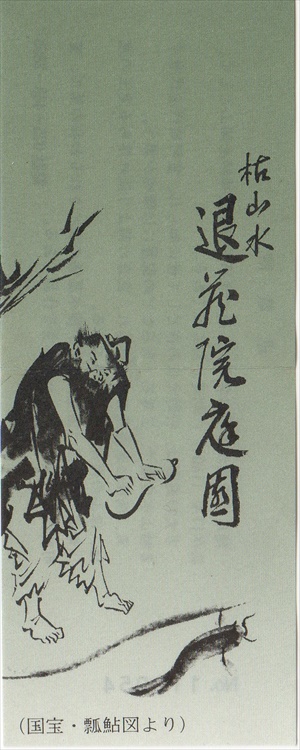 枯山水
退蔵院庭園
(国宝・瓢鮎図より)